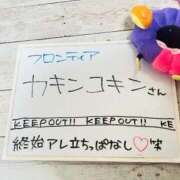 フロンティア
カキンコキンさん
KEEP OUT!! KEEP OUT!! KE
終始アレ立ちっぱなし♡笑